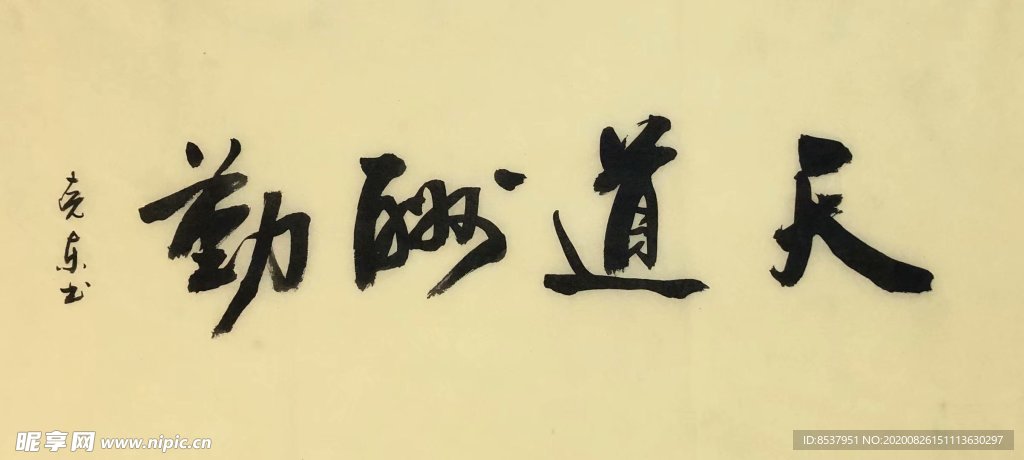 天道酬勤
尧东书
昵享网 www.nipic.cn
ID:8537951 NO:20200826151113630297